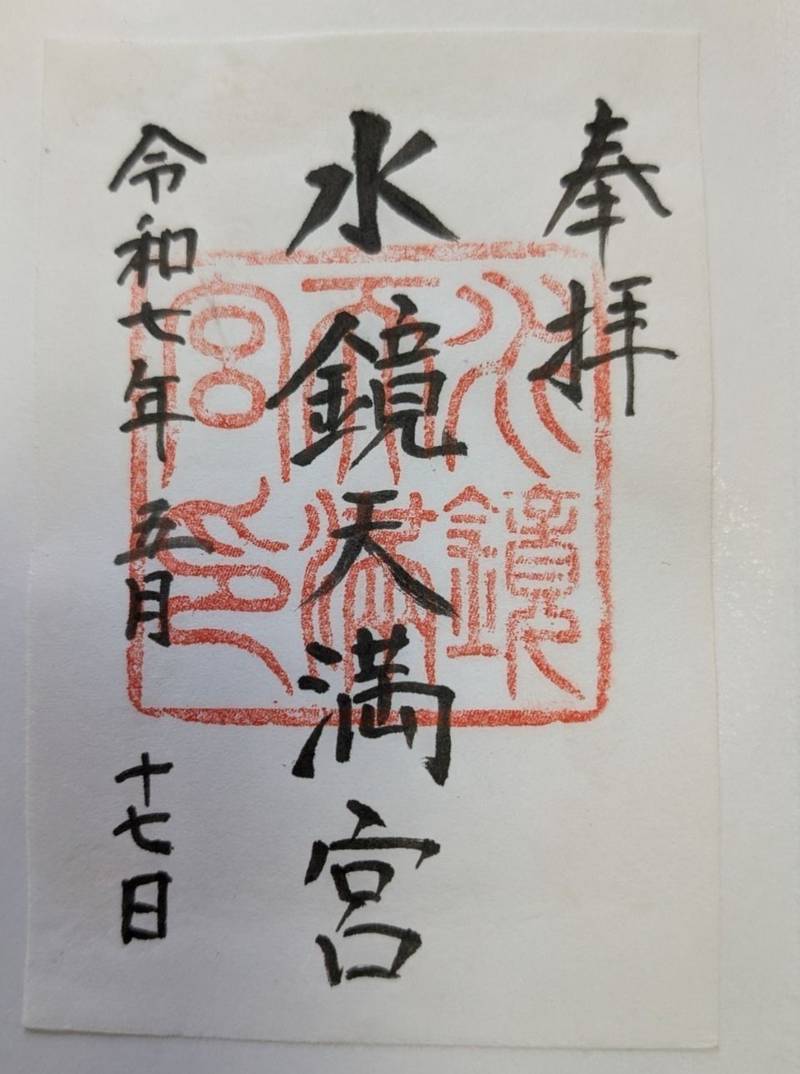 奉拝
水鏡天満宮
令和七年五月十七日
水鏡
天満
宮印